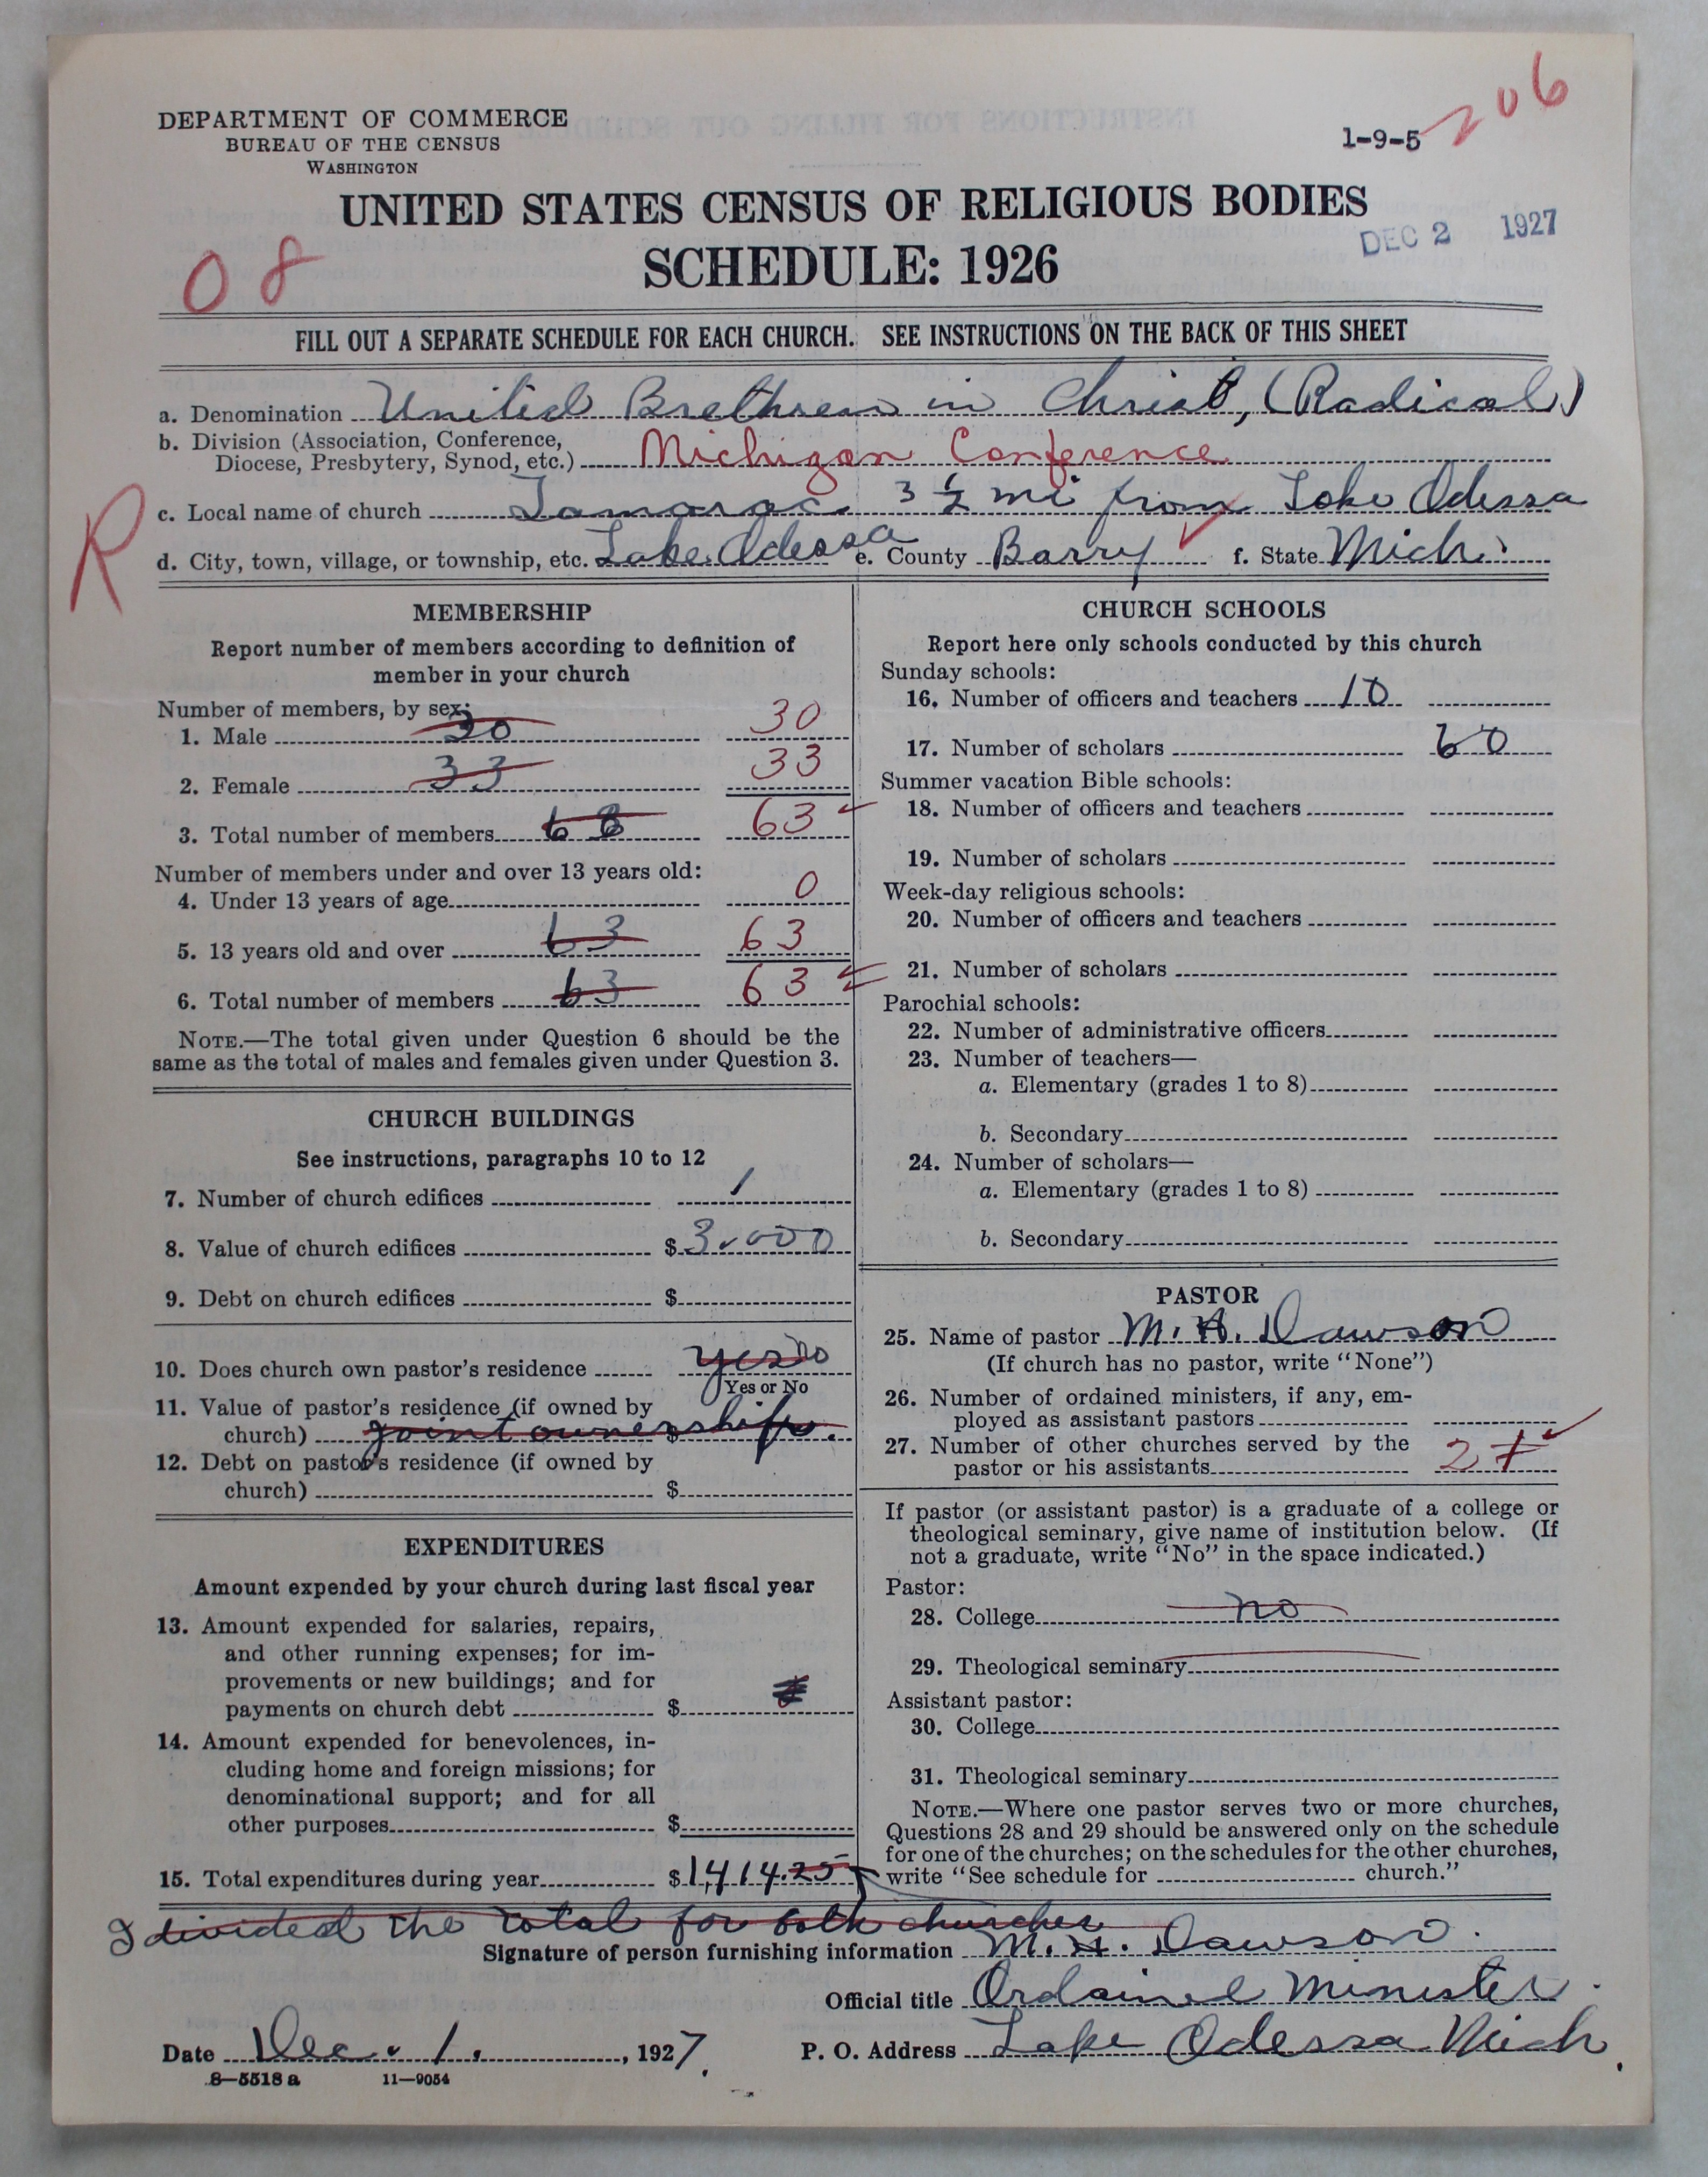 206
DEPARTMENT OF COMMERCE
BUREAU OF THE CENSUS
WASHINGTON
1-9-5
UNITED STATES CENSUS OF RELIGIOUS BODIES
SCHEDULE: 1926
DEC 2 1927
08
FILL OUT A SEPARATE SCHEDULE FOR EACH CHURCH. SEE INSTRUCTIONS ON THE BACK OF THIS SHEET
a. Denomination United Brethren in Christ, (Radical)
b. Division (Association, Conference,
Diocese, Presbytery, Synod, etc.) Michigan Conference
R
c. Local name of church Tamarac 3 1/2 mi from Lake Odessa
d. City, town, village, or township, etc. Lake Odessa e. County Barry f. State Mich.
MEMBERSHIP
Report number of members according to definition of
member in your church
Number of members, by sex:
1. Male 30 30
2. Female 33 33
3. Total number of members 63 63
Number of members under and over 13 years old:
4. Under 13 years of age 0
5. 13 years old and over 63 63
6. Total number of members 63 63
NOTE.—The total given under Question 6 should be the
same as the total of males and females given under Question 3.
CHURCH BUILDINGS
See instructions, paragraphs 10 to 12
7. Number of church edifices 1
8. Value of church edifices $3,000
9. Debt on church edifices $
10. Does church own pastor's residence yes no
Yes or No
11. Value of pastor's residence (if owned by
church) joint ownership. $
12. Debt on pastor's residence (if owned by
church) $
EXPENDITURES
Amount expended by your church during last fiscal year
13. Amount expended for salaries, repairs,
and other running expenses; for im-
provements or new buildings; and for
payments on church debt $
14. Amount expended for benevolences, in-
cluding home and foreign missions; for
denominational support; and for all
other purposes $
15. Total expenditures during year $1,414.25
I divided the total for both churches
CHURCH SCHOOLS
Report here only schools conducted by this church
Sunday schools:
16. Number of officers and teachers 10
17. Number of scholars 60
Summer vacation Bible schools:
18. Number of officers and teachers
19. Number of scholars
Week-day religious schools:
20. Number of officers and teachers
21. Number of scholars
Parochial schools:
22. Number of administrative officers
23. Number of teachers—
a. Elementary (grades 1 to 8)
b. Secondary
24. Number of scholars—
a. Elementary (grades 1 to 8)
b. Secondary
PASTOR
25. Name of pastor M. H. Dawson
(If church has no pastor, write "None")
26. Number of ordained ministers, if any, em-
ployed as assistant pastors
27. Number of other churches served by the
pastor or his assistants 2
If pastor (or assistant pastor) is a graduate of a college or
theological seminary, give name of institution below. (If
not a graduate, write "No" in the space indicated.)
Pastor:
28. College no
29. Theological seminary
Assistant pastor:
30. College
31. Theological seminary
NOTE.—Where one pastor serves two or more churches,
Questions 28 and 29 should be answered only on the schedule
for one of the churches; on the schedules for the other churches,
write "See schedule for church."
Signature of person furnishing information M. H. Dawson.
Official title Ordained Minister.
Date Dec. 1., 1927. P. O. Address Lake Odessa Mich.
8—5518 a 11—9054